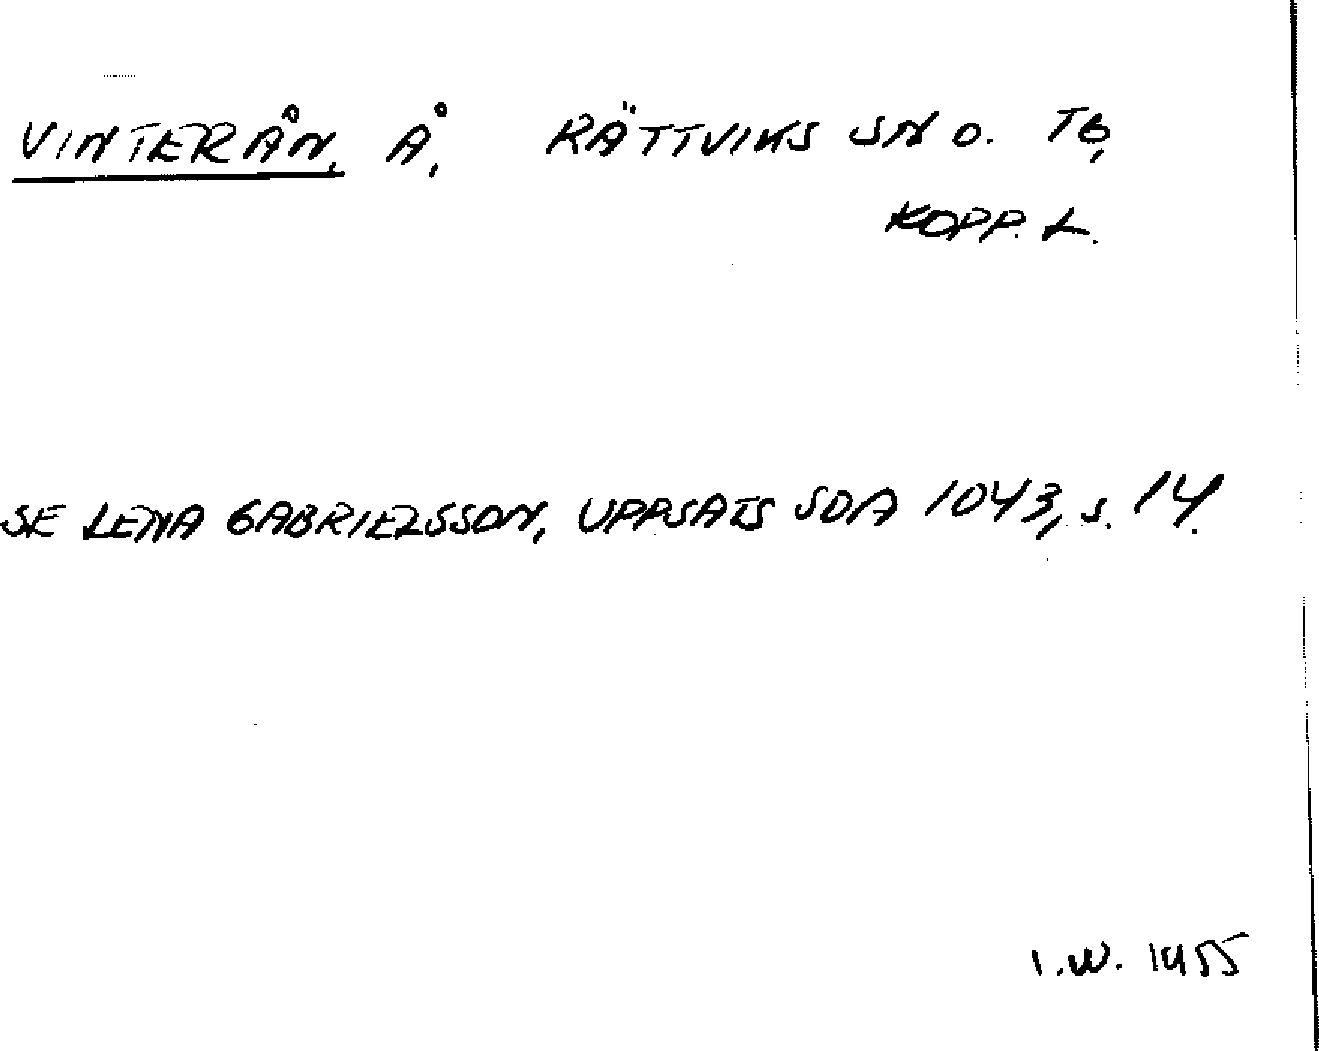 VINTERÅN, Å, RÄTTVIKS SN O. TG,
KOPP. L.
SE LENA GABRIELSSON, UPPSATS SOA 1043, s. 14.
I.W. 1955